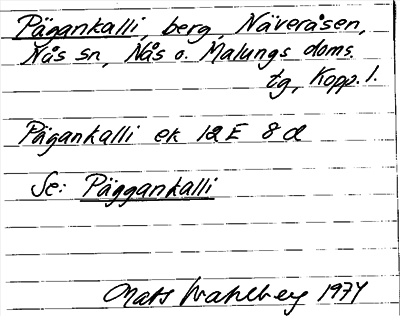 Pägankalli, berg, Näveråsen,
Nås sn, Nås o. Malungs doms.
tg, Kopp. l.
Pägankalli ek 12E 8d
Se: Päggankalli
Mats Wahlberg 1974